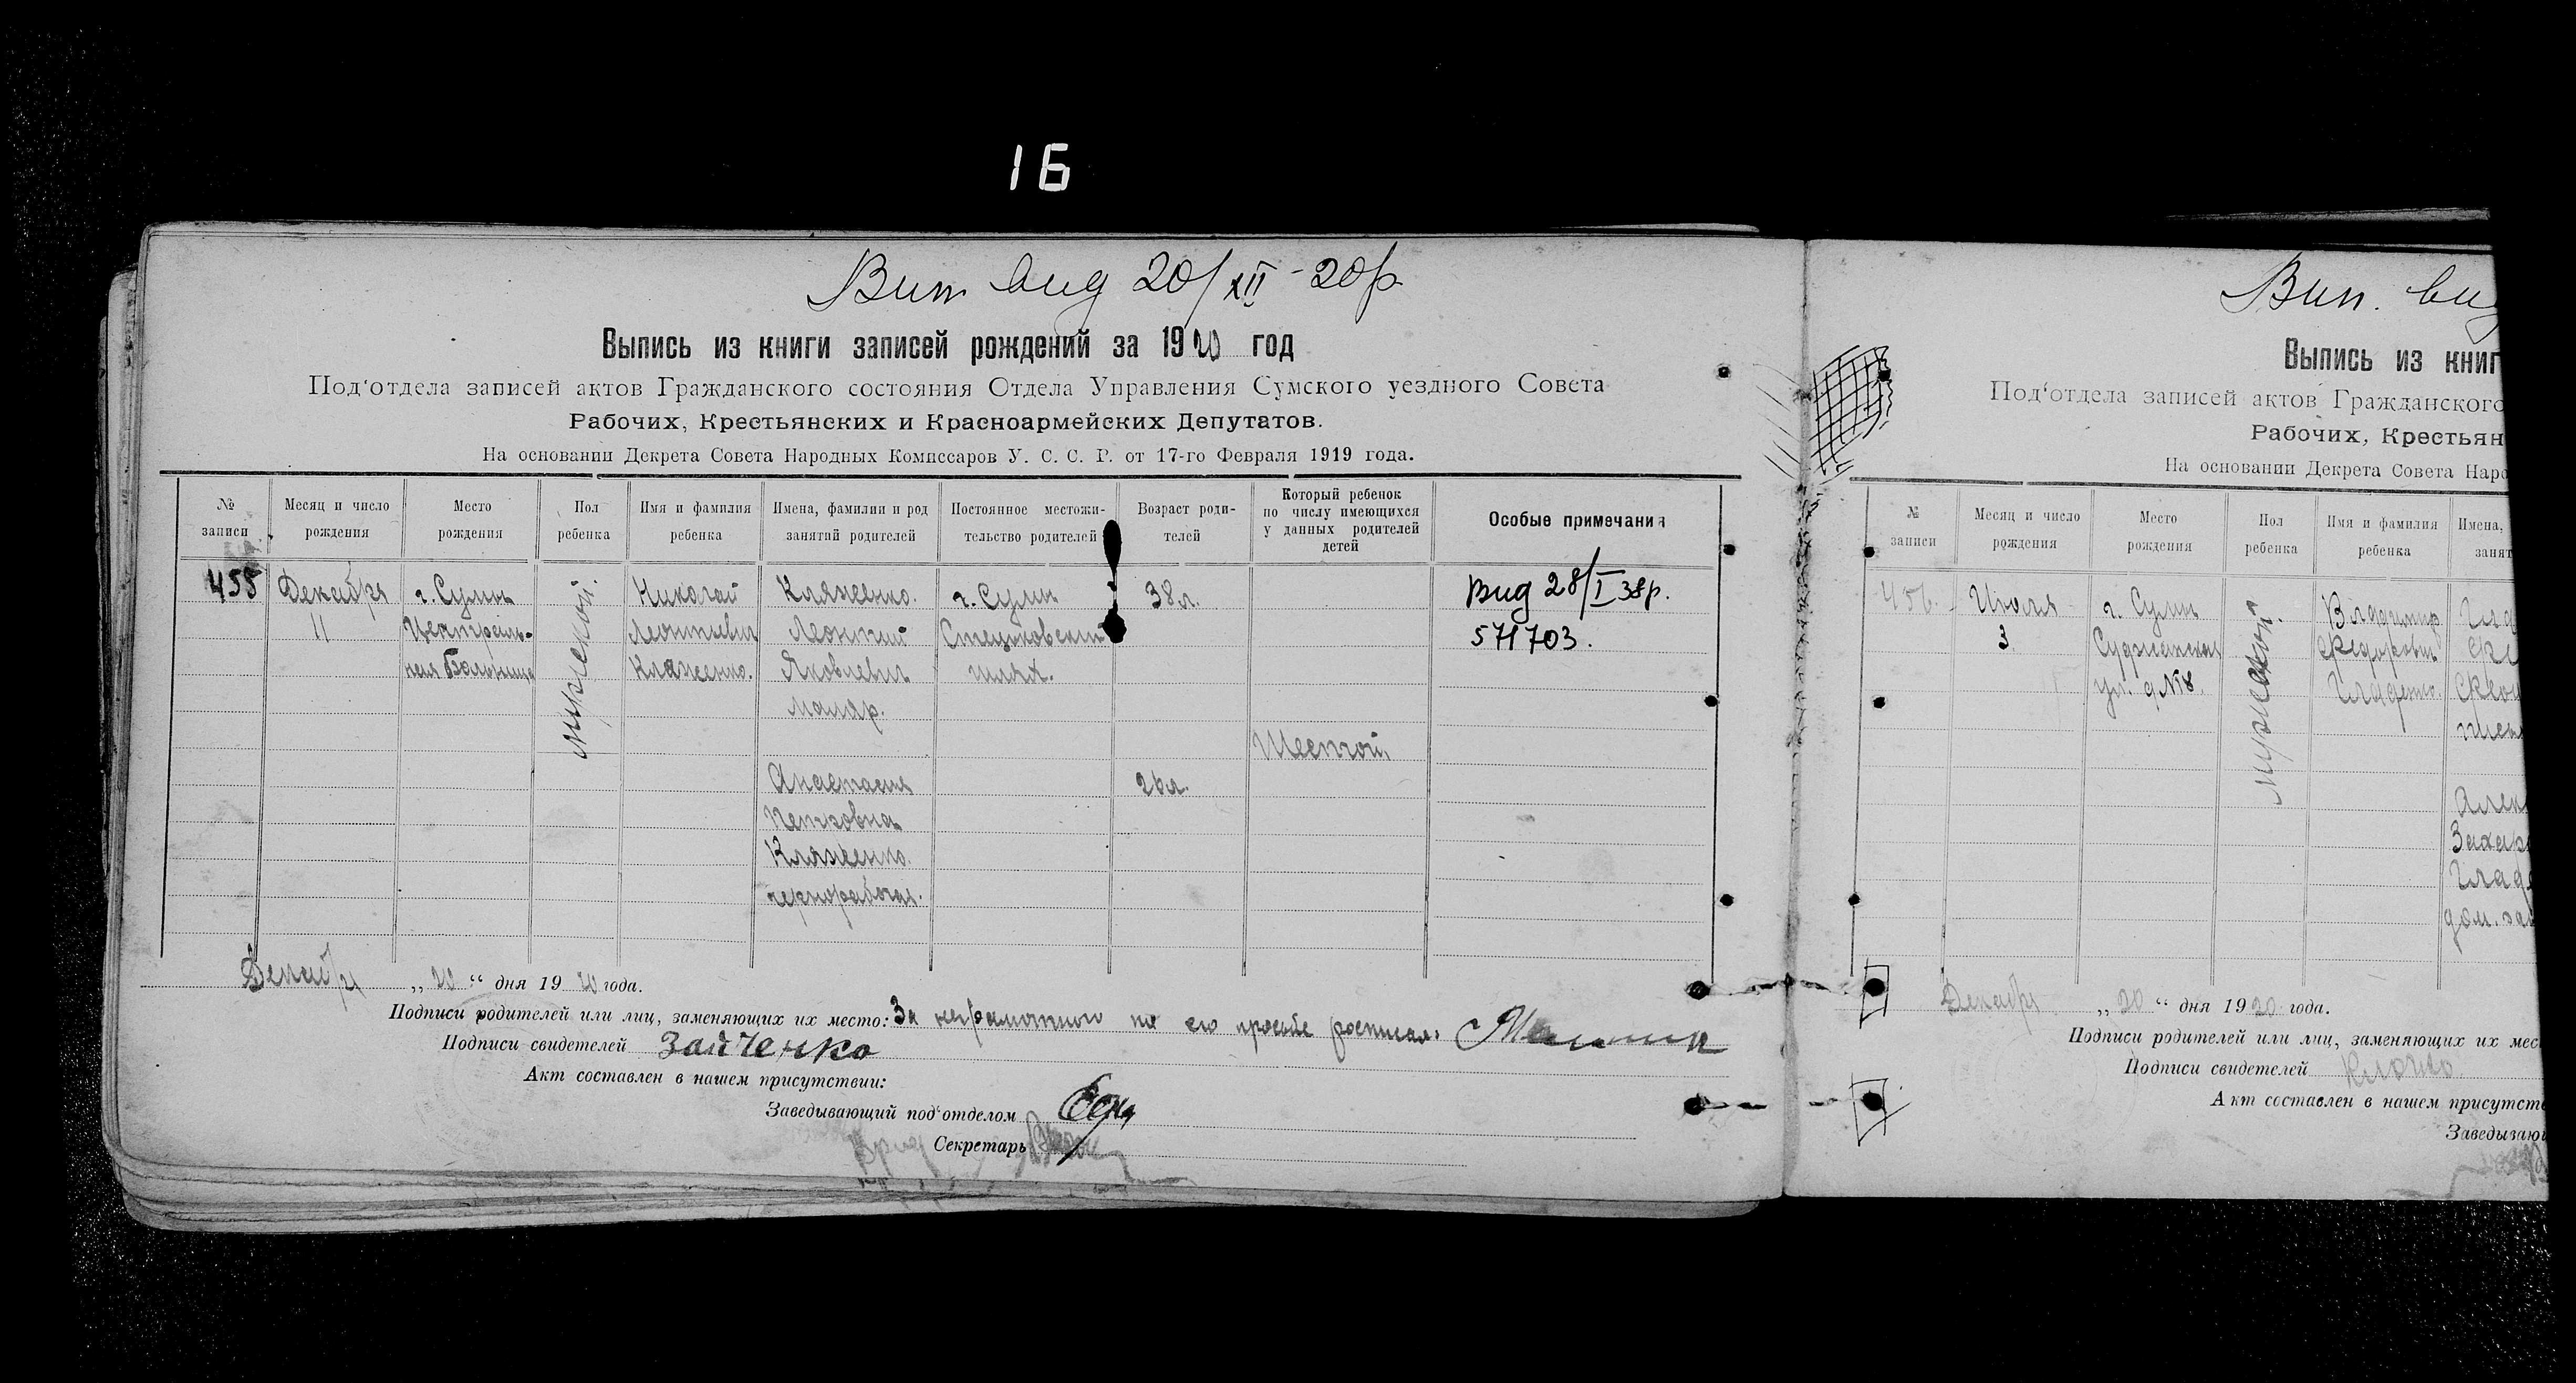 16
Вип вид 20/XII-20р
Выпись из книги записей рождений за 1920 год
Под'отдела записей актов Гражданского состояния Отдела Управления Сумского уездного Совета
Рабочих, Крестьянских и Красноармейских Депутатов.
На основании Декрета Совета Народных Комиссаров У. С. С. Р. от 17-го Февраля 1919 года.
№ записи
Месяц и число рождения
Место рождения
Пол ребенка
Имя и фамилия ребенка
Имена, фамилии и род занятий родителей
Постоянное местожительство родителей
Возраст родителей
Который ребенок по числу имеющихся у данных родителей детей
Особые примечания
455
Декабря
11
г. Сумы
Централь-
ная Больница
мужской.
Николай
Леонтьевич
Кляженко.
Кляженко.
Леонтий
Яковлевич
маляр.
Анастасия
Петровна
Кляженко.
чернорабочая.
г. Сумы
Стецковский
шлях.
38 л.
26 л.
Шестой,
Вид 28/I 38р.
571703.
Декабря „20“ дня 1920 года.
Подписи родителей или лиц, заменяющих их место: За неграмотного по его просьбе росписал.
Подписи свидетелей Зайченко
Акт составлен в нашем присутствии:
Заведывающий под'отделом
Секретарь
Вип. вид
Выпись из книг
Под'отдела записей актов Гражданского
Рабочих, Крестьян
На основании Декрета Совета Наро
№ записи
Месяц и число рождения
Место рождения
Пол ребенка
Имя и фамилия ребенка
Имена,
занят
456.
Июля
3
г. Сумы
Суджанская
ул. д №18.
мужской.
Владимир
Федорович
Гладенко.
Алек
Захар
Глад
дом. за
Декабря „20“ дня 1920 года.
Подписи родителей или лиц, заменяющих их мес
Подписи свидетелей Клочко
Акт составлен в нашем присутств
Заведываю